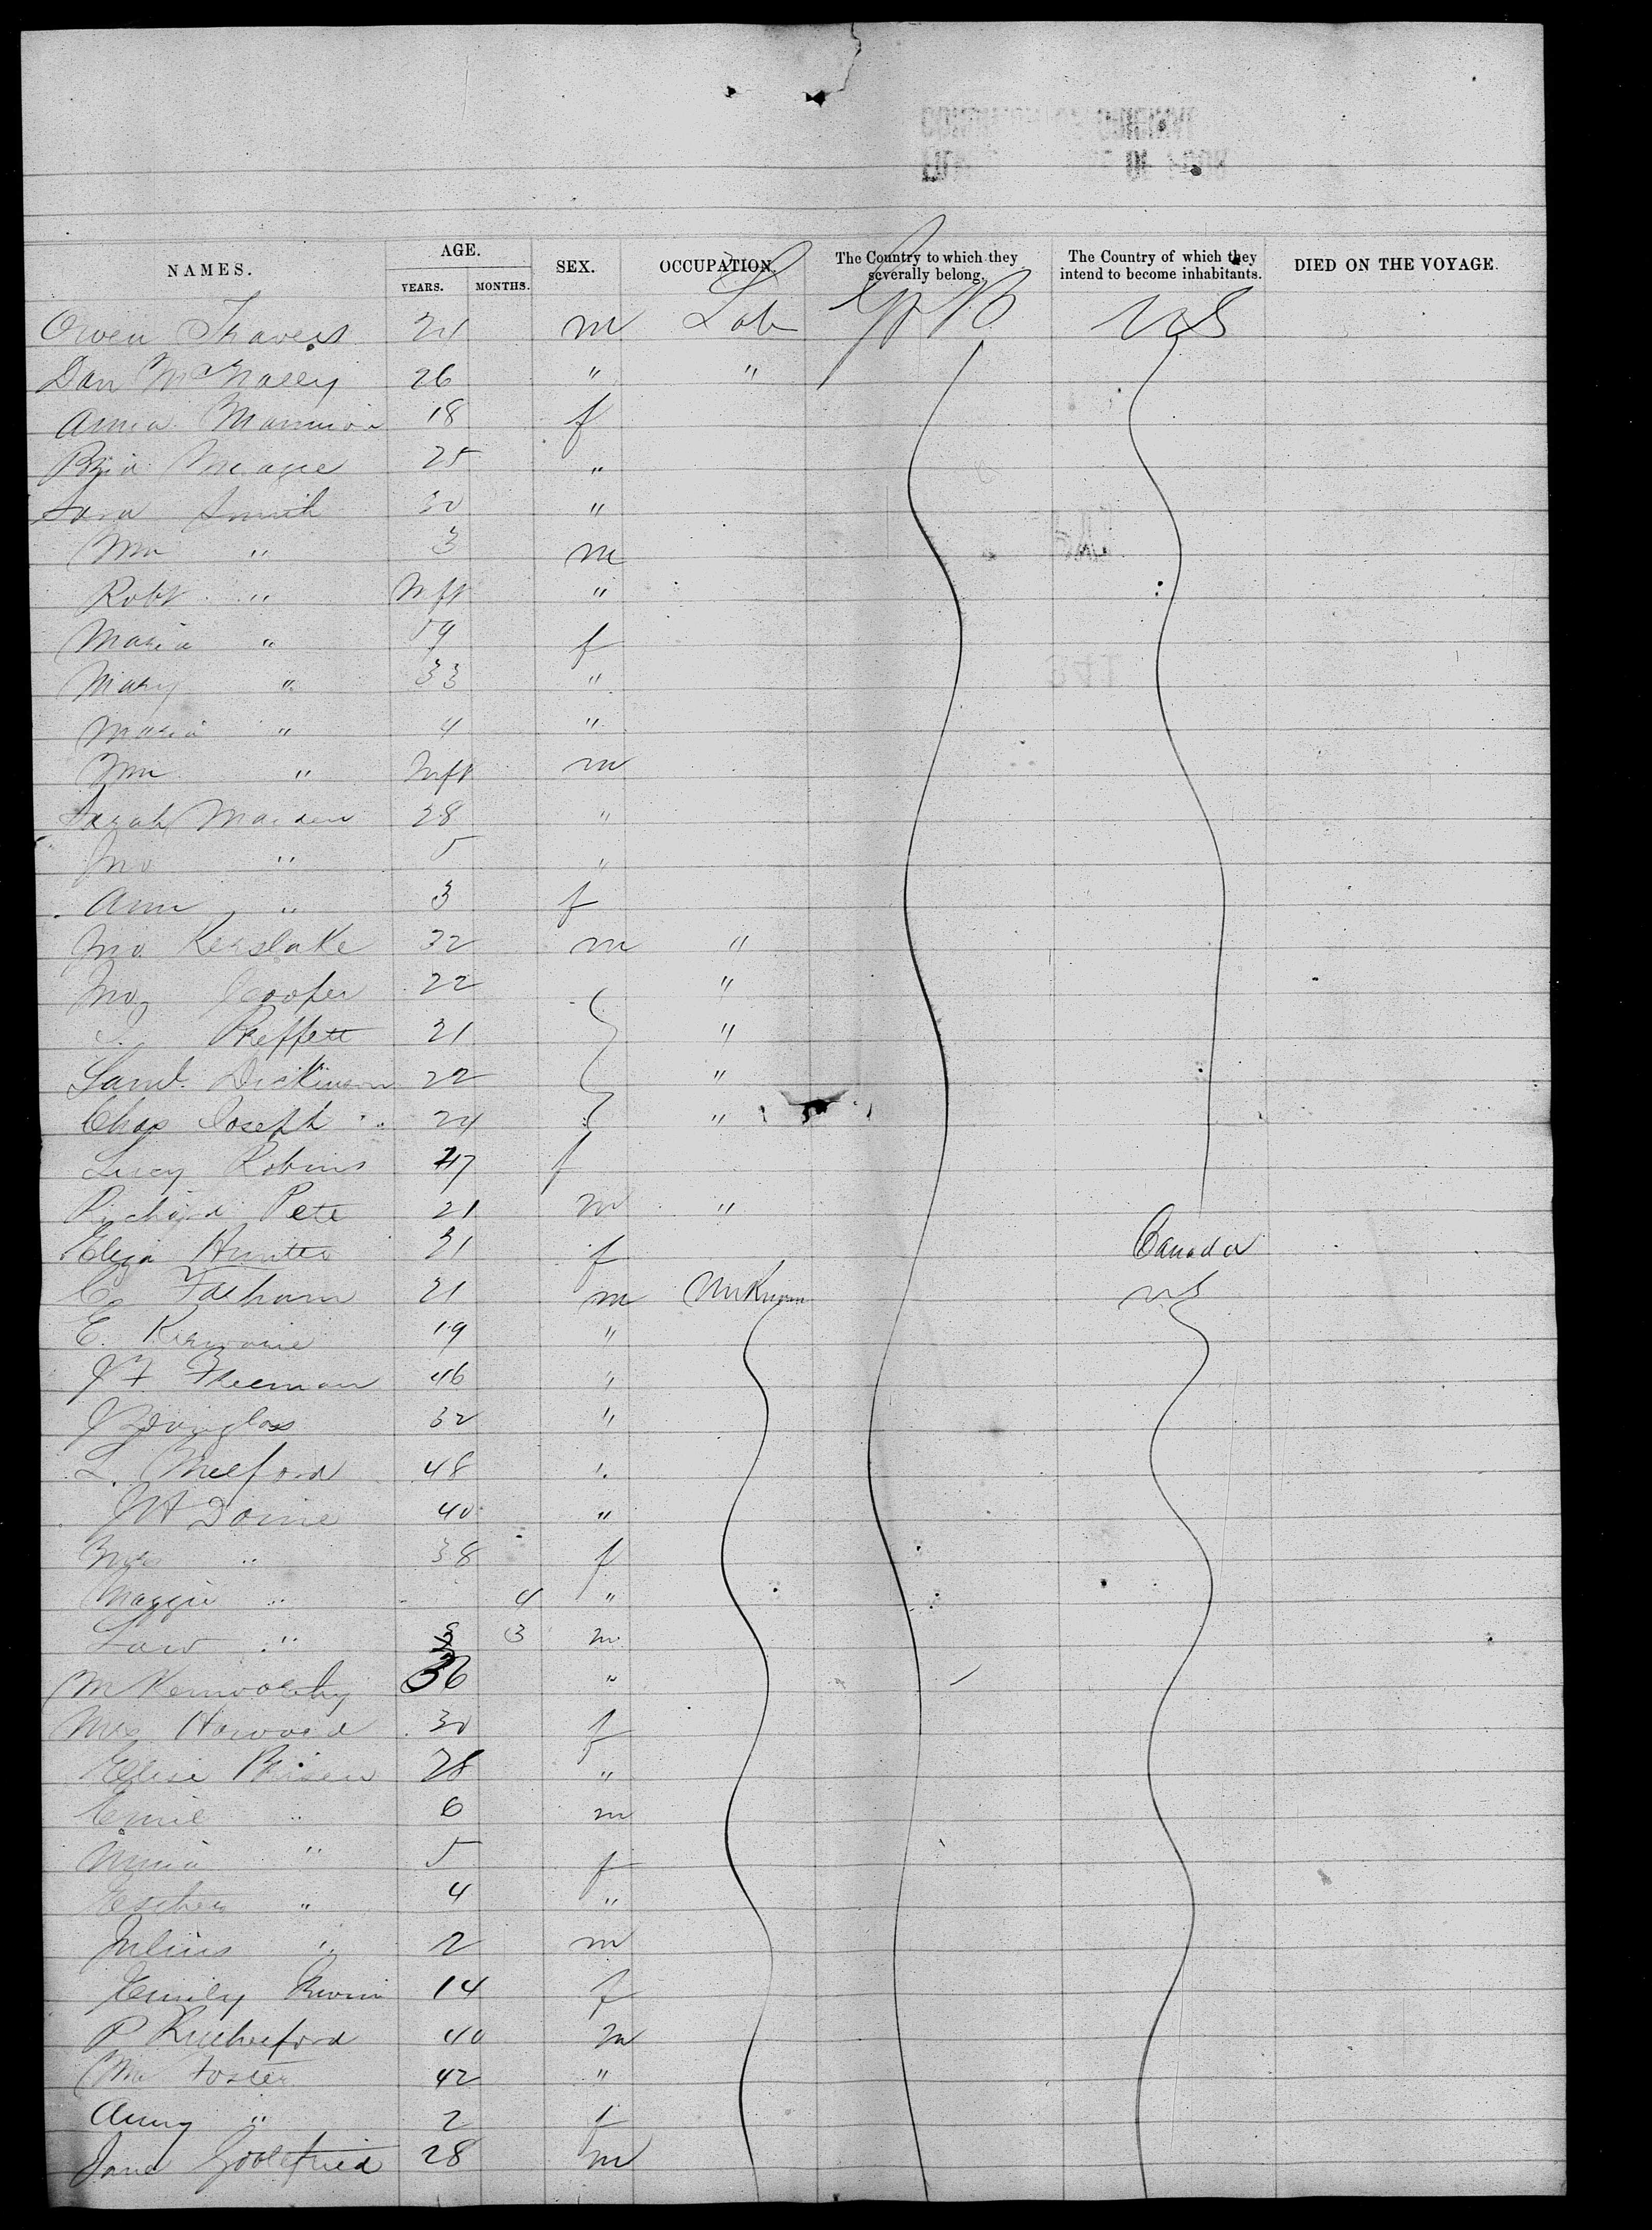 NAMES. AGE. YEARS. MONTHS. SEX. OCCUPATION. The Country to which they severally belong. The Country of which they intend to become inhabitants. DIED ON THE VOYAGE.
Owen Travers 24 m Lab Gt B U S
Dan McNally 26 " "
Annie 18 f
25 "
Sara Smith 30 "
Wm " 3 m
Robt " Inft "
Maria " 19 f
Mary " 33 "
Maria " 4 "
Wm " Inft m
Sarah 28 "
Jno " 5 "
Ann " 3 f
Jno Kerslake 32 m "
Jno Cooper 22 "
21 "
Saml Dickinson 22 "
Chas Joseph 24 "
Lucy Robins 47 f
Richard Pete 21 m "
Eliza Hunter 31 f Canada
21 m Unknown U S
E. Kirwaine 19 "
J F Freeman 46 "
J Douglass 32 "
L. Milford 48 "
40 "
Mrs " 38 f
Maggie " 4 "
Law " 3 m
M Kenworthy 36 "
Mrs Harwood 30 f
Elise 28 "
Emil " 6 m
" 5 f
Esther " 4 "
Julius " 2 m
Emily 14 f
P Rutherford 40 m
Wm Foster 42 "
Amy " 2 f
Gottfried 28 m